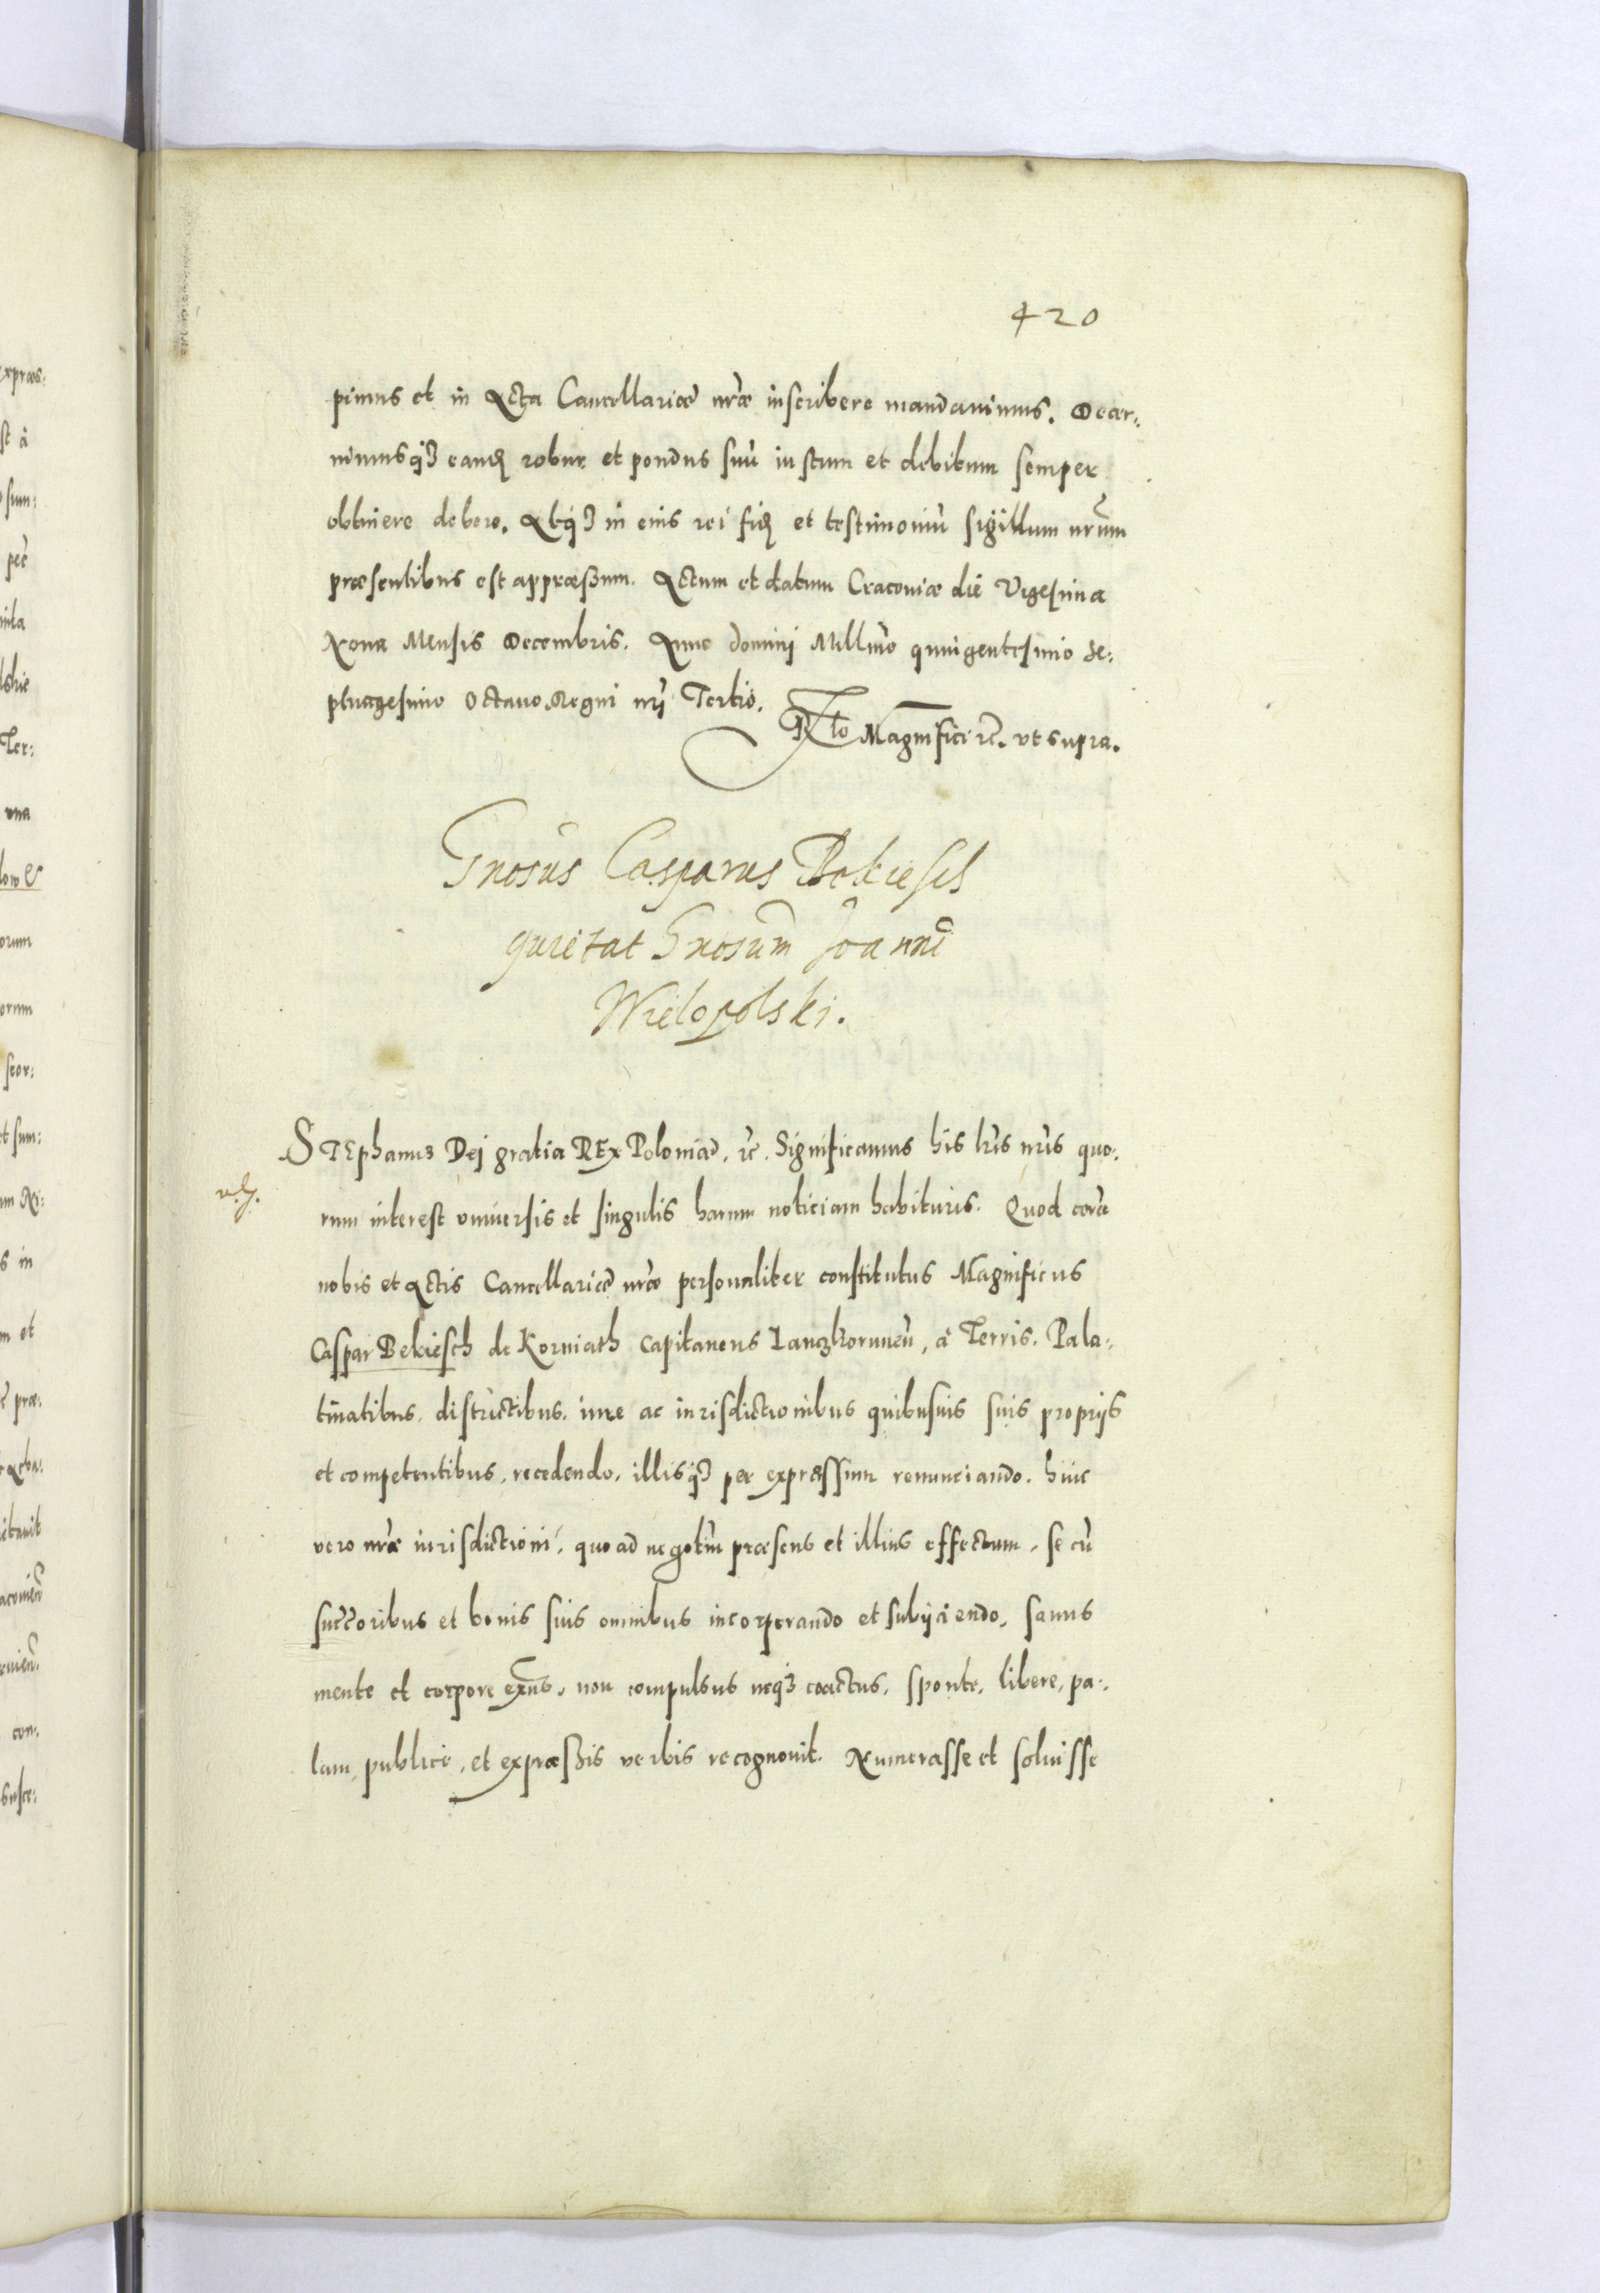 420
pimus et in Acta Cancellariæ nr̃æ inscribere mandauimus. Decer:
nimusq3 eand robur et pondus suũ iustum et debitum semper
obtinere debere. Atq3 in eius rei fid et testimoniũ sigillum nr̃um
præsentibus est appræssum. Actum et datum Cracoviæ die Vigesima
Nona Mensis Decembris. Anno Domini Millmo quingentesimo se:
ptuagesimo Octauo. Regni nr̃j Tertio.
Rlo Magnifici rc. vt supra.
Gnosus Casparus Bekiesch
quietat Gnosum Joannē
Wielopolski.
STEphanus Dej gratia REx Poloniæ. rc. Significamus his lr̃is nr̃is quo:
rum interest vniuersis et singulis harum noticiam habituris. Quod corã
nobis et Actis Cancellariæ nr̃æ personaliter constitutus Magnificus
Caspar Bekiesch de Korniath Capitaneus Lanczkorunen̄, à Terris. Pala:
tinatibus, districtibus. iure ac iurisdictionibus quibusuis suis proprijs
et competentibus, recedendo, illisq3 per expræssum renunciando. huic
vero nr̃æ iurisdictioni, quo ad negotm̃ præsens et illius effectum, se cũ
succ̃oribus et bonis suis omnibus incorporando et subijciendo, sanus
mente et corpore exñs, non compulsus neq3 coactus, sponte, libere, pa:
lam, publice, et expræssis verbis recognouit. Numerasse et soluisse